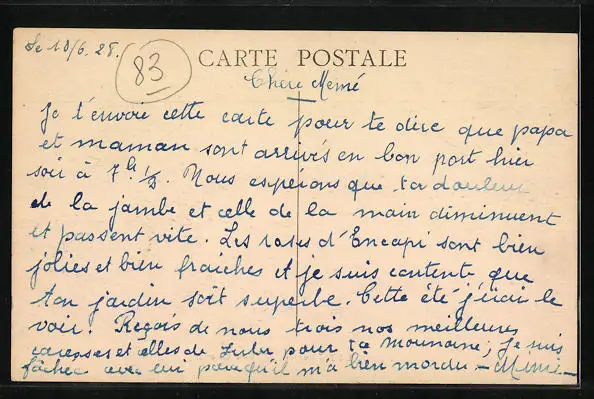 Le 10/6. 28.
83
CARTE POSTALE
Chère Mémé
Je t'envoie cette carte pour te dire que papa
et maman sont arrivés en bon port hier
soir à 7h 1/2. Nous espérons que ta douleur
de la jambe et celle de la main diminuent
et passent vite. Les roses d'Encapi sont bien
jolies et bien fraîches et je suis contente que
ton jardin soit superbe. Cette été j'irai le
voir. Reçois de nous trois nos meilleures
caresses et celles de Lulu pour ta Mounaine; je suis
fâchée avec lui parcequ'il m'a bien mordu - Mimi -